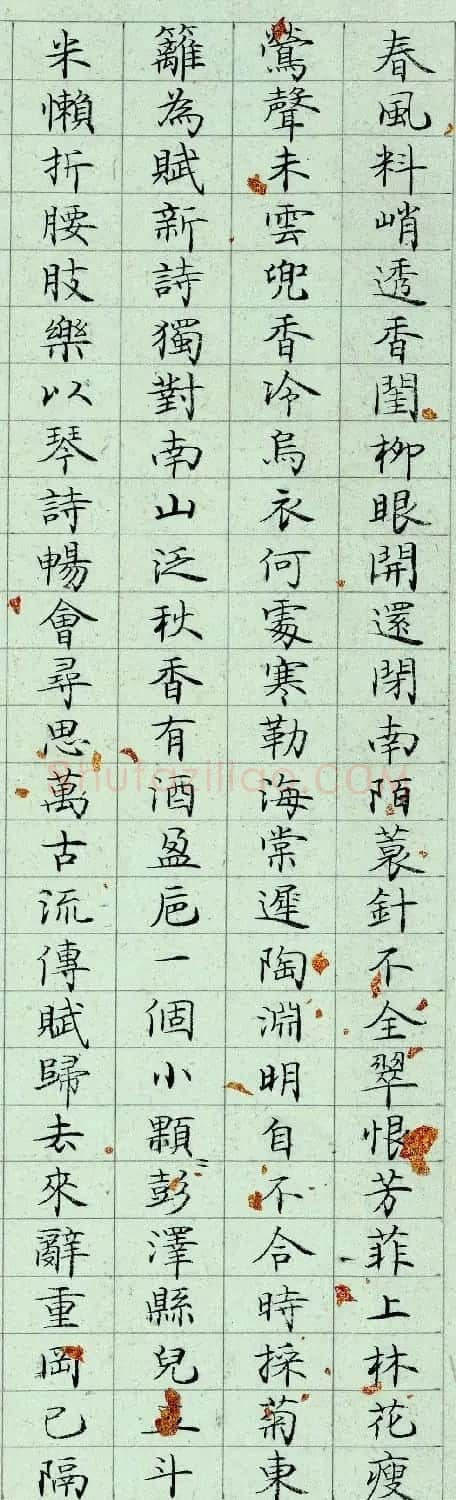 春風料峭透香閨柳眼開還閉南陌蓑針不全翠恨芳菲上林花瘦
鶯聲未雲兜香冷烏衣何處寒勒海棠遲陶淵明自不合時採菊東
籬為賦新詩獨對南山泛秋香有酒盈巵一個小顆彭澤縣兒五斗
米懶折腰肢樂以琴詩暢會尋思萬古流傳賦歸去來辭重岡已隔
Shufaziliao.COM